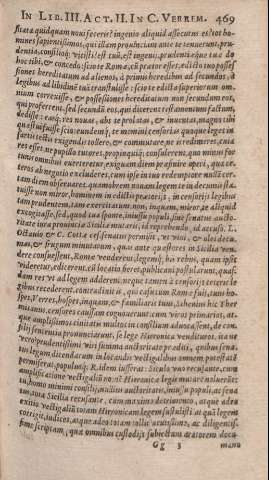 IN LIB. III. ACT. II. IN C. VERREM. 469
fitata quidquam noui feceris? ingenio aliquid assecutus es? tot ho-
mines sapientissimos, qui illam prouinciam ante te tenuerunt, pru-
dentia, consilioq; vicisti? est tuũ, est ingenij, prudentiæque tuæ do
hoc tibi, & concedo: scio te Romæ, cũ prætor esses, edicto tuo posses-
siones hereditatum ad alienos, à primis heredibus ad secundos, à
legibus ad libidinẽ tuã transtulisse: scio te edicta superiorum om-
nium & possessiones hereditatum non secundum eos,
qui proferrent, sed secundũ eos, qui dicerent esse annum falsum,
dedisse: easq; res nouas, abs te prolatas, & inuentas, magno tibi
quæstui fuisse scio: eundemq; te memini censorias quoque leges in
sartis tectis exigendis tollere, & commutare: ne is redimeret, cuia
res esset: ne pupillo tutores, propinquiq; consulerent, quo minus for
tunis omnibus euerteretur, exiguum diem præfinire operi, quo ce-
teros ab negotio excluderes, cum ipse in tuo redemptore nullã cer-
tam diem obseruares, quamobrem nouam legem te in decumis sta-
tuisse non miror, hominem in edictis prætorijs, in censorijs legibus
tam prudentem, tam exercitatum, non, inquam, miror, te aliquid
excogitasse, sed, quod tua sponte, iniussu populi, sine senatus aucto-
ritate iura prouinciæ Siciliæ mutaris, id reprehendo, id accuso. L.
Octauio & C. Cottæ cõss senatus permisit, vt vini, & olei decu-
mas, & frugum minutarum, quas ante quæstores in Sicilia ven-
dere consuessent, Romæ venderent, legemq; his rebus, quam ipsis
videretur, edicerent, cũ locatio fieret, publicani postularunt, quas-
dam res vt ad legem adderent, neque tamen à ceteris censorijs le-
gibus recederent, contradixit is, qui casu tum Romæ fuit, tuus ho-
spes, Verres, hospes, inquam, & familiaris tuus, Sthenius hic Ther
mitanus, consules caussam cognouerunt, cum viros primarios, at-
que amplissimos ciuitatis multos in consilium aduocassent, de con-
silij sententia pronunciarunt, se lege Hieronica vendituros, ita ne
vero? prudentissimi viri summa auctoritate præditi, quibus sena-
tus legum dicendarum in locandis vectigalibus omnem potestatẽ
permiserat, populusq; R. idem iusserat, Siculo vno recusante, cum
amplificatione vectigaliũ nomẽ Hieronicæ legis mutare noluerũt:
tu, homo minimi consilij, nullius auctoritatis, iniussu populi, ac sena-
tus, tota Sicilia recusante, cum maximo detrimento, atque adeo
exitio vectigaliũ totam Hieronicam legem sustulisti. at quã legem
corrigit, iudices, atque adeo totam tollit? acutissime, ac diligentis-
sime scriptam, quæ omnibus custodijs subiectum aratorem decu-
Gg 3 mano